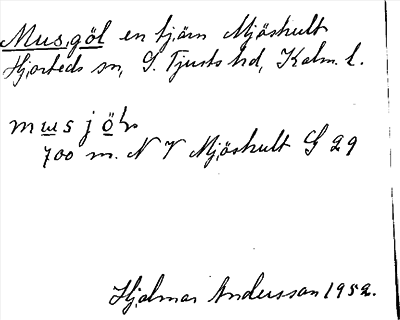 Mus,göl en tjärn Mjöshult
Hjorteds sn, S. Tjusts hd, Kalm. l.
musjö̲l
700 m. N V Mjöshult G 29
Hjalmar Andersson 1952.